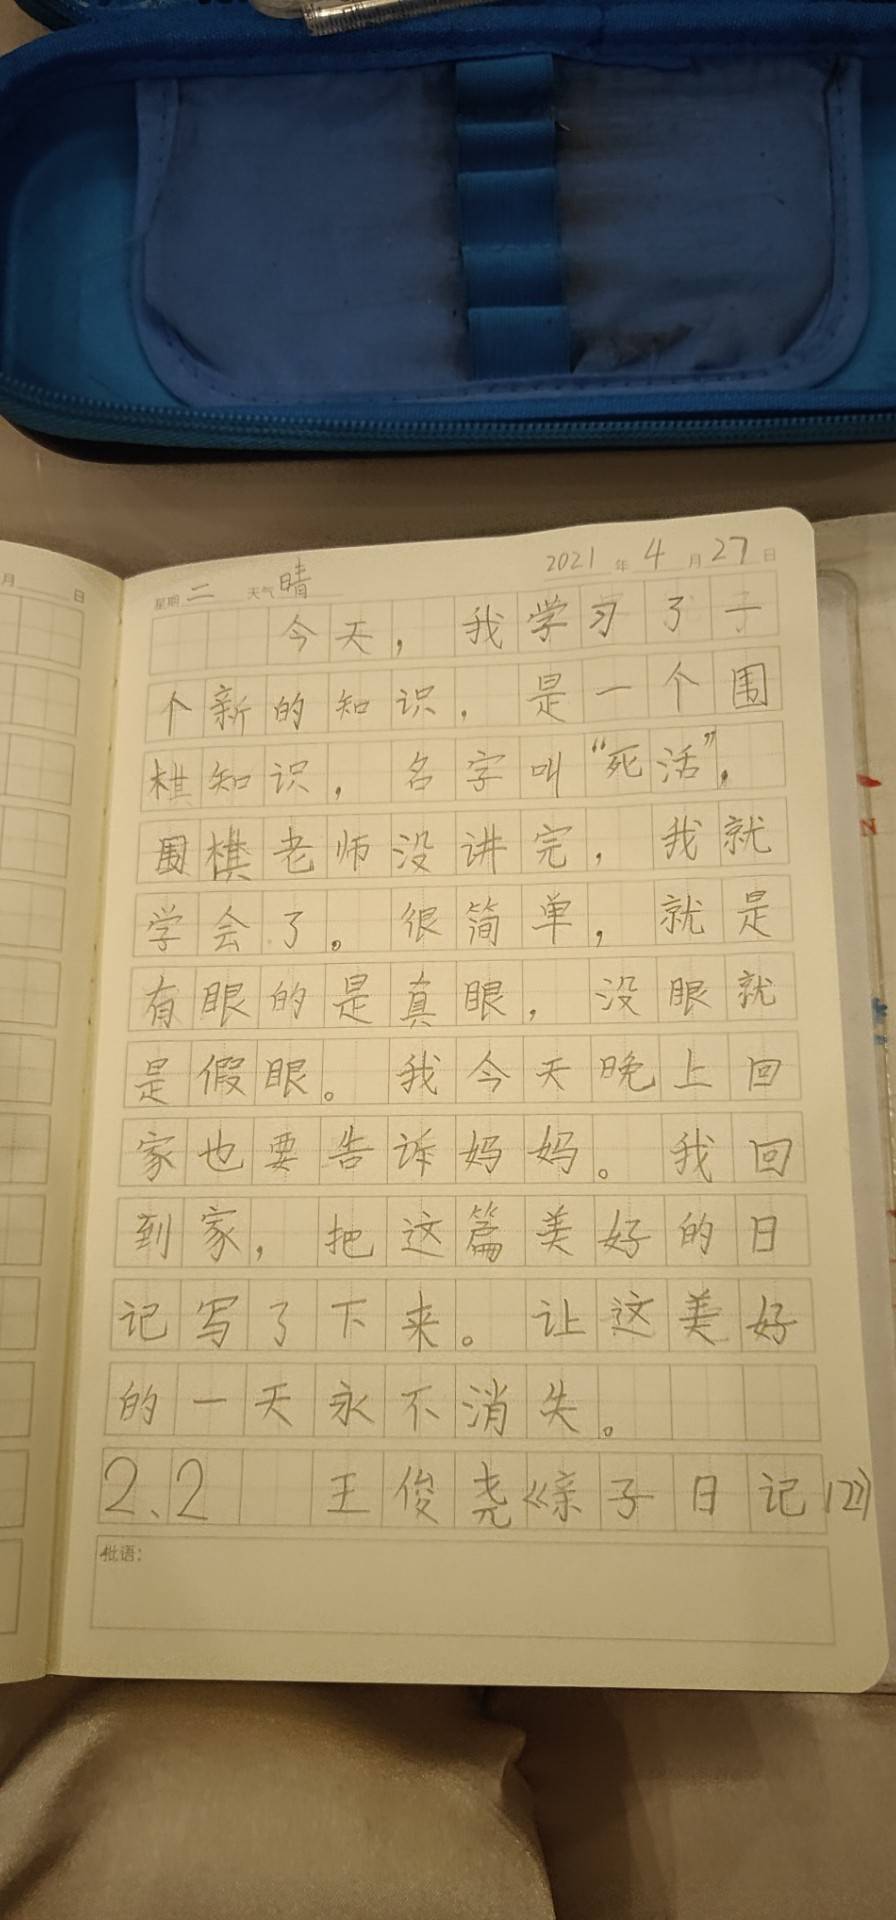 月 日
星期 二 天气 晴 2021 年 4 月 27 日
今天，我学习了一
个新的知识，是一个围
棋知识，名字叫“死活”，
围棋老师没讲完，我就
学会了。很简单，就是
有眼的是真眼，没眼就
是假眼。我今天晚上回
家也要告诉妈妈。我回
到家，把这篇美好的日
记写了下来。让这美好
的一天永不消失。
2、2 王俊尧《亲子日记122》
批语：
N